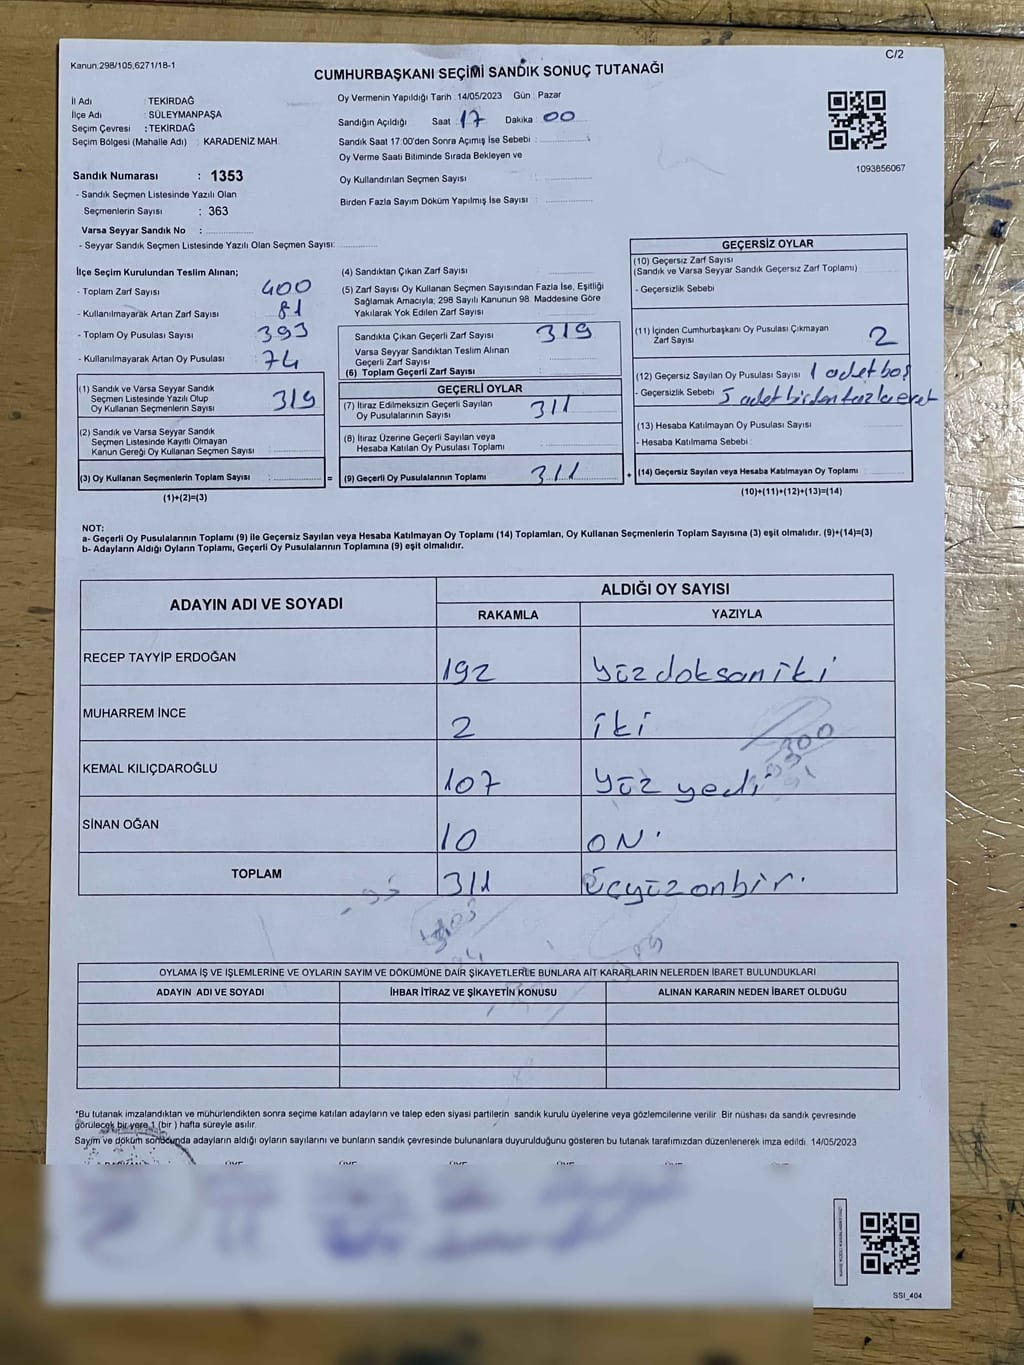 Kanun:298/105,6271/18-1
C/2
CUMHURBAŞKANI SEÇİMİ SANDIK SONUÇ TUTANAĞI
İl Adı : TEKİRDAĞ
İlçe Adı : SÜLEYMANPAŞA
Seçim Çevresi : TEKİRDAĞ
Seçim Bölgesi (Mahalle Adı) : KARADENİZ MAH
Oy Vermenin Yapıldığı Tarih : 14/05/2023 Gün : Pazar
Sandığın Açıldığı Saat : 17 Dakika : 00
Sandık Saat 17:00'den Sonra Açımış İse Sebebi :
Oy Verme Saati Bitiminde Sırada Bekleyen ve
Oy Kullandırılan Seçmen Sayısı :
Birden Fazla Sayım Döküm Yapılmış İse Sayısı :
1093856067
Sandık Numarası : 1353
- Sandık Seçmen Listesinde Yazılı Olan
Seçmenlerin Sayısı : 363
Varsa Seyyar Sandık No :
- Seyyar Sandık Seçmen Listesinde Yazılı Olan Seçmen Sayısı:
İlçe Seçim Kurulundan Teslim Alınan;
- Toplam Zarf Sayısı : 400
- Kullanılmayarak Artan Zarf Sayısı : 81
- Toplam Oy Pusulası Sayısı : 393
- Kullanılmayarak Artan Oy Pusulası : 74
(1) Sandık ve Varsa Seyyar Sandık
Seçmen Listesinde Yazılı Olup
Oy Kullanan Seçmenlerin Sayısı : 319
(2) Sandık ve Varsa Seyyar Sandık
Seçmen Listesinde Kayıtlı Olmayan
Kanun Gereği Oy Kullanan Seçmen Sayısı :
(3) Oy Kullanan Seçmenlerin Toplam Sayısı : =
(1)+(2)=(3)
(4) Sandıktan Çıkan Zarf Sayısı :
(5) Zarf Sayısı Oy Kullanan Seçmen Sayısından Fazla İse, Eşitliği
Sağlamak Amacıyla; 298 Sayılı Kanunun 98. Maddesine Göre
Yakılarak Yok Edilen Zarf Sayısı :
Sandıkta Çıkan Geçerli Zarf Sayısı : 319
Varsa Seyyar Sandıktan Teslim Alınan
Geçerli Zarf Sayısı :
(6) Toplam Geçerli Zarf Sayısı :
GEÇERLİ OYLAR
(7) İtiraz Edilmeksizin Geçerli Sayılan
Oy Pusulalarının Sayısı : 311
(8) İtiraz Üzerine Geçerli Sayılan veya
Hesaba Katılan Oy Pusulası Toplamı :
(9) Geçerli Oy Pusulalarının Toplamı : 311 +
GEÇERSİZ OYLAR
(10) Geçersiz Zarf Sayısı
(Sandık ve Varsa Seyyar Sandık Geçersiz Zarf Toplamı)
- Geçersizlik Sebebi :
(11) İçinden Cumhurbaşkanı Oy Pusulası Çıkmayan
Zarf Sayısı : 2
(12) Geçersiz Sayılan Oy Pusulası Sayısı : 1 adet boş
- Geçersizlik Sebebi : 5 adet birden fazla evet
(13) Hesaba Katılmayan Oy Pusulası Sayısı :
- Hesaba Katılmama Sebebi :
(14) Geçersiz Sayılan veya Hesaba Katılmayan Oy Toplamı :
(10)+(11)+(12)+(13)=(14)
NOT:
a- Geçerli Oy Pusulalarının Toplamı (9) ile Geçersiz Sayılan veya Hesaba Katılmayan Oy Toplamı (14) Toplamları, Oy Kullanan Seçmenlerin Toplam Sayısına (3) eşit olmalıdır. (9)+(14)=(3)
b- Adayların Aldığı Oyların Toplamı, Geçerli Oy Pusulalarının Toplamına (9) eşit olmalıdır.
ADAYIN ADI VE SOYADI
ALDIĞI OY SAYISI
RAKAMLA YAZIYLA
RECEP TAYYİP ERDOĞAN 192 yüzdoksaniki
MUHARREM İNCE 2 iki
KEMAL KILIÇDAROĞLU 107 yüz yedi
SİNAN OĞAN 10 ON
TOPLAM 311 üçyüzonbir.
OYLAMA İŞ VE İŞLEMLERİNE VE OYLARIN SAYIM VE DÖKÜMÜNE DAİR ŞİKAYETLERLE BUNLARA AİT KARARLARIN NELERDEN İBARET BULUNDUKLARI
ADAYIN ADI VE SOYADI İHBAR İTİRAZ VE ŞİKAYETİN KONUSU ALINAN KARARIN NEDEN İBARET OLDUĞU
*Bu tutanak imzalandıktan ve mühürlendikten sonra seçime katılan adayların ve talep eden siyasi partilerin sandık kurulu üyelerine veya gözlemcilerine verilir. Bir nüshası da sandık çevresinde
görülecek bir yere 1 (bir ) hafta süreyle asılır.
Sayım ve döküm sonucunda adayların aldığı oyların sayılarını ve bunların sandık çevresinde bulunanlara duyurulduğunu gösteren bu tutanak tarafımızdan düzenlenerek imza edildi. 14/05/2023
SSI_404